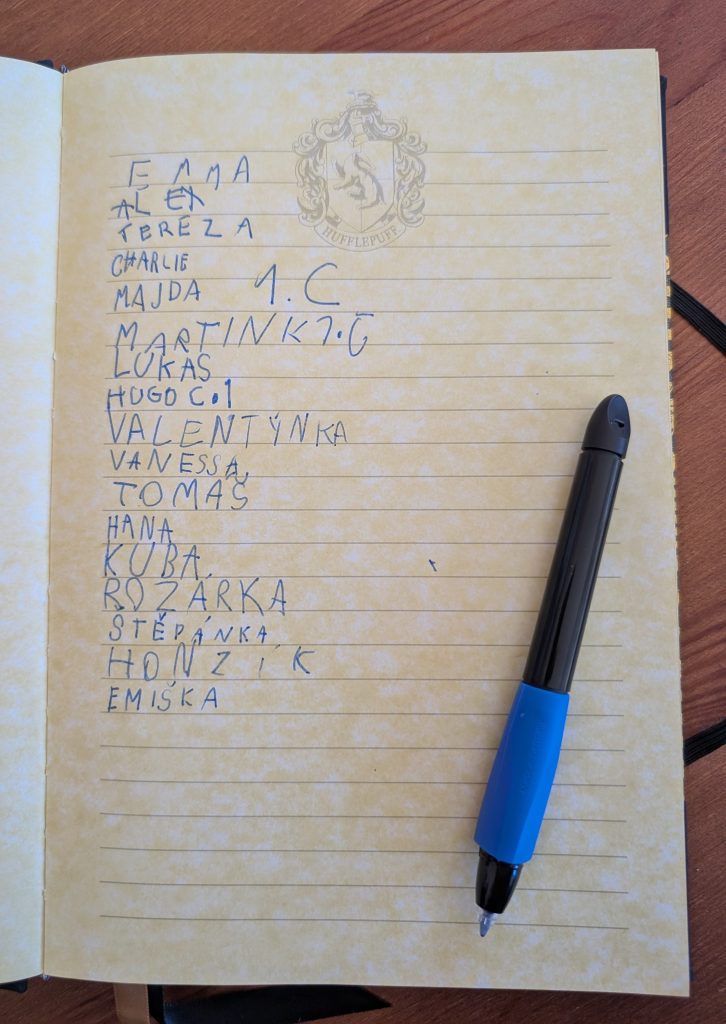 HUFFLEPUFF
EMMA
ALEX
TEREZA
CHARLIE
MAJDA 1.C
MARTINK 1.C
LUKAŠ
HUGO C.1
VALENTÝNKA
VANESSA
TOMAŠ
HANA
KUBA
ROZÁRKA
ŠTĚPÁNKA
HONZÍK
EMIŠKA